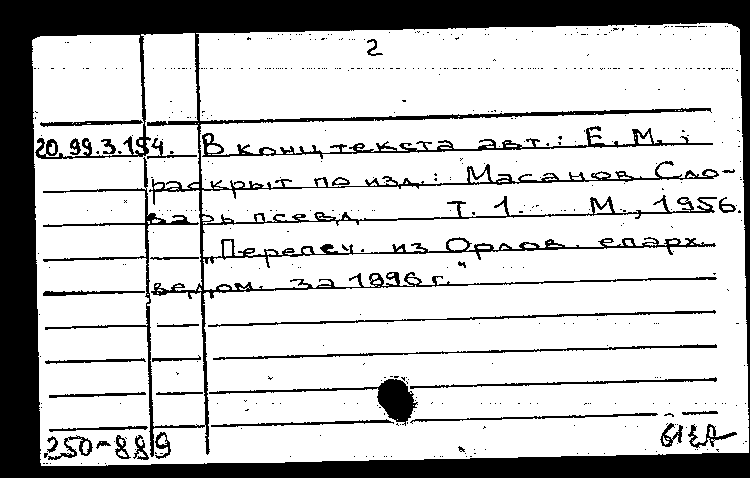 2
20.99.3.154. В конц текста авт.: Е. М.;
раскрыт по изд.: Масанов. Сло-
варь псевд. Т. 1. М., 1956.
„Перепеч. из Орлов. епарх.
ведом. за 1896 г."
250-889